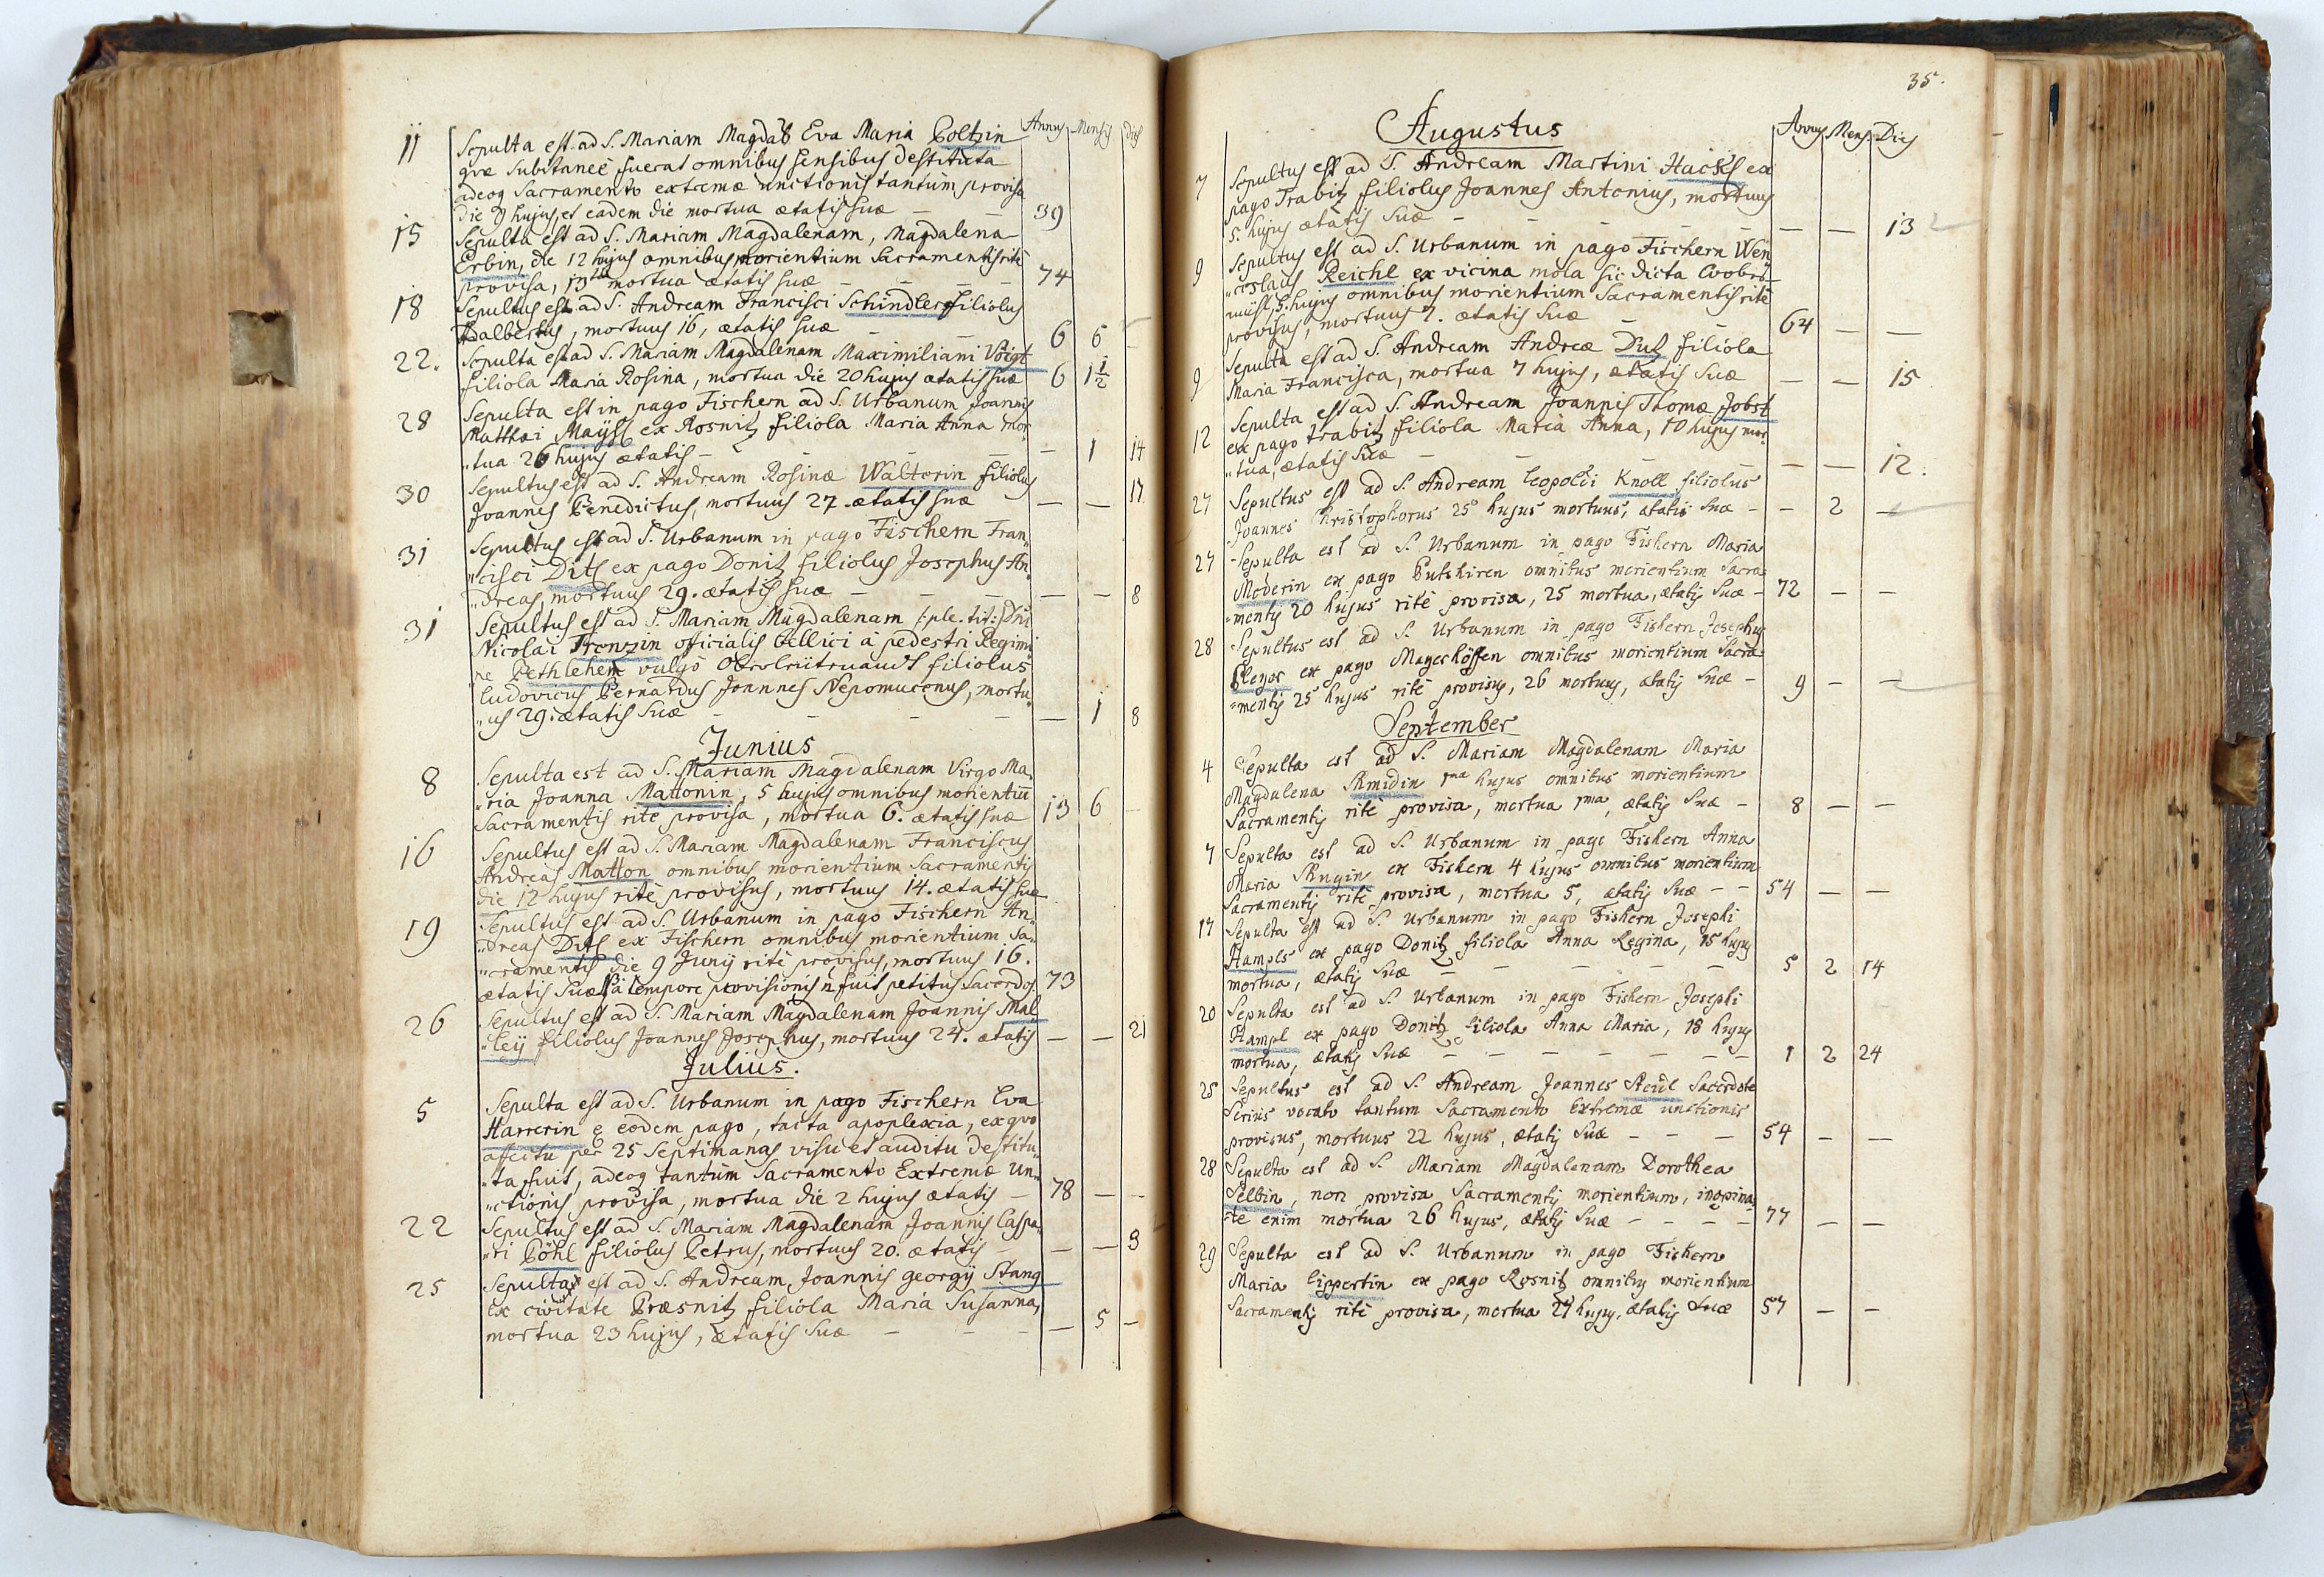 Annus Mensis Dies
11 Sepulta est ad S. Mariam Magdal Eva Maria Poltzin
qvæ subitaneè fuerat omnibus sensibus destituta
adeoq Sacramento extremæ unctionis tantùm provisa
die 9 hujus et eadem die mortua ætatis suæ — — 39
15 Sepulta est ad S. Mariam Magdalenam, Magdalena
Erbin, die 12 hujus omnibus morientium Sacramentis ritè
provisa, 13 mortua ætatis suæ — — — 74
18 Sepultus est ad S. Andream Francisci Schindler filiolus
Adalbertus, mortuus 16, ætatis suæ — — 6 6 —
22. Sepulta est ad S. Mariam Magdalenam Maximiliani Voigt
filiola Maria Rosina, mortua die 20 hujus ætatis suæ 6 1 1/2
28 Sepulta est in pago Fischern ad S. Urbanum Joannis
Matthæi Maÿsl ex Rosnitz filiola Maria Anna mor„
„tua 26 hujus ætatis — — — — — 1 14
30 Sepultus est ad S. Andream Rosinæ Walterin filiolus
Joannes Benedictus, mortuus 27. ætatis suæ — — 17
31 Sepultus est ad S. Urbanum in pago Fischern Fran„
„cisci Dits ex pago Donitz filiolus Josephus An„
„dreas, mortuus 29. ætatis suæ — — — — — 8
31 Sepultus est ad S. Mariam Magdalenam /: ple. tit:/ Dni
Nicolai Tronzin officialis bellici à pedestri Regimi
ne Bethlehem vulgò filiolus
Ludovicus Bernardus Joannes Nepomucenus, mortu„
„us 29. ætatis suæ — — — — — 1 8
Junius
8 Sepulta est ad S. Mariam Magdalenam Virgo Ma„
„ria Joanna Mattonin, 5 hujus omnibus morientiū
Sacramentis ritè provisa, mortua 6. ætatis suæ 13 6 —
16 Sepultus est ad S. Mariam Magdalenam Franciscus
Andreas Matton omnibus morientium Sacramentis
die 12 hujus ritè provisus, mortuus 14. ætatis suæ
19 Sepultus est ad S. Urbanum in pago Fischern An„
„dreas Dits ex Fischern omnibus morientium Sa„
„cramentis die 9 Junij ritè provisus, mortuus 16.
ætatis suæ à tempore provisionis n fuit petitus Sacerdos. 73
26 Sepultus est ad S. Mariam Magdalenam Joannis Mal
„teÿ filiolus Joannes Josephus, mortuus 24. ætatis — — 21
Julius.
5 Sepulta est ad S. Urbanum in pago Fischern Eva
Harrerin è eodem pago, tacta apoplexia, ex qvo
affectu per 25 Septimanas visu et auditu destitu„
„ta fuit, adeoq tantùm Sacramento Extremæ Un„
„ctionis provisa, mortua die 2 hujus ætatis — 78 — —
22 Sepultus est ad S. Mariam Magdalenam Joannis Caspa„
„ri Pöhl filiolus Petrus, mortuus 20. ætatis — — — 3
25 Sepulta est ad S. Andream, Joannis Georgÿ Stang
ex civitate Præsnitz filiola Maria Susanna,
mortua 23 hujus, ætatis suæ — — — — 5 —
35.
Augustus
Annus Mens. Dies
7 Sepultus est ad S. Andream Martini Hackl ex
pago Trabitz filiolus Joannes Antonius, mortuus
5. hujus ætatis suæ — — — — — — 13
9 Sepultus est ad S. Urbanum in pago Fischern Wen„
„ceslaus Reichl ex vicina mola sic dicta
5. hujus omnibus morientium Sacramentis ritè
provisus, mortuus 7. ætatis suæ — — 64 — —
9 Sepulta est ad S. Andream Andreæ Dutz filiola
Maria Francisca, mortua 7 hujus, ætatis suæ — — 15
12 Sepulta est ad S. Andream Joannis Thomæ Jobst
ex pago Trabitz filiola Maria Anna, 10 hujus mor„
„tua, ætatis suæ — — — — — — 12.
27 Sepultus est ad S. Andream Leopoldi Knoll filiolus
Joannes Christophorus 25 hujus mortuus, ætatis suæ — — 2 —
27 Sepulta est ad S. Urbanum in pago Fishern Maria
Moderin ex pago Putshiren omnibus morientium Sacra=
=mentis 20 hujus ritè provisa, 25 mortua, ætatis suæ — 72 — —
28 Sepultus est ad S. Urbanum in pago Fishern Josephus
Pleyer ex pago Mayerhöffen omnibus morientium Sacra=
=mentis 25 hujus ritè provisus, 26 mortuus, ætatis suæ — 9 — —
September
4 Sepulta est ad S. Mariam Magdalenam Maria
Magdalena Shmidin 1ma hujus omnibus morientium
Sacramentis ritè provisa, mortua 1ma, ætatis suæ — 8 — —
7 Sepulta est ad S. Urbanum in pago Fishern Anna
Maria Rugin ex Fishern 4 hujus omnibus morientium
Sacramentis ritè provisa, mortua 5, ætatis suæ — — 54 — —
17 Sepulta est ad S. Urbanum in pago Fishern Josephi
Hampls ex pago Donitz filiola Anna Regina, 15 hujus
mortua, ætatis suæ — — — — — 5 2 14
20 Sepulta est ad S. Urbanum in pago Fishern Josephi
Hampl ex pago Donitz filiola Anna Maria, 18 hujus
mortua, ætatis suæ — — — — — — 1 2 24
25 Sepultus est ad S. Andream Joannes Steidl Sacerdote
Seriùs vocato tantum Sacramento Extremæ unctionis
provisus, mortuus 22 hujus, ætatis suæ — — — 54 — —
28 Sepulta est ad S. Mariam Magdalenam Dorothea
Selbin, non provisa Sacramentis morientium, inopina=
=tè enim mortua 26 hujus, ætatis suæ — — — — 77 — —
29 Sepulta est ad S. Urbanum in pago Fishern
Maria Lippertin ex pago Rosnitz omnibus morientium
Sacramentis ritè provisa, mortua 27 hujus, ætatis suæ 57 — —